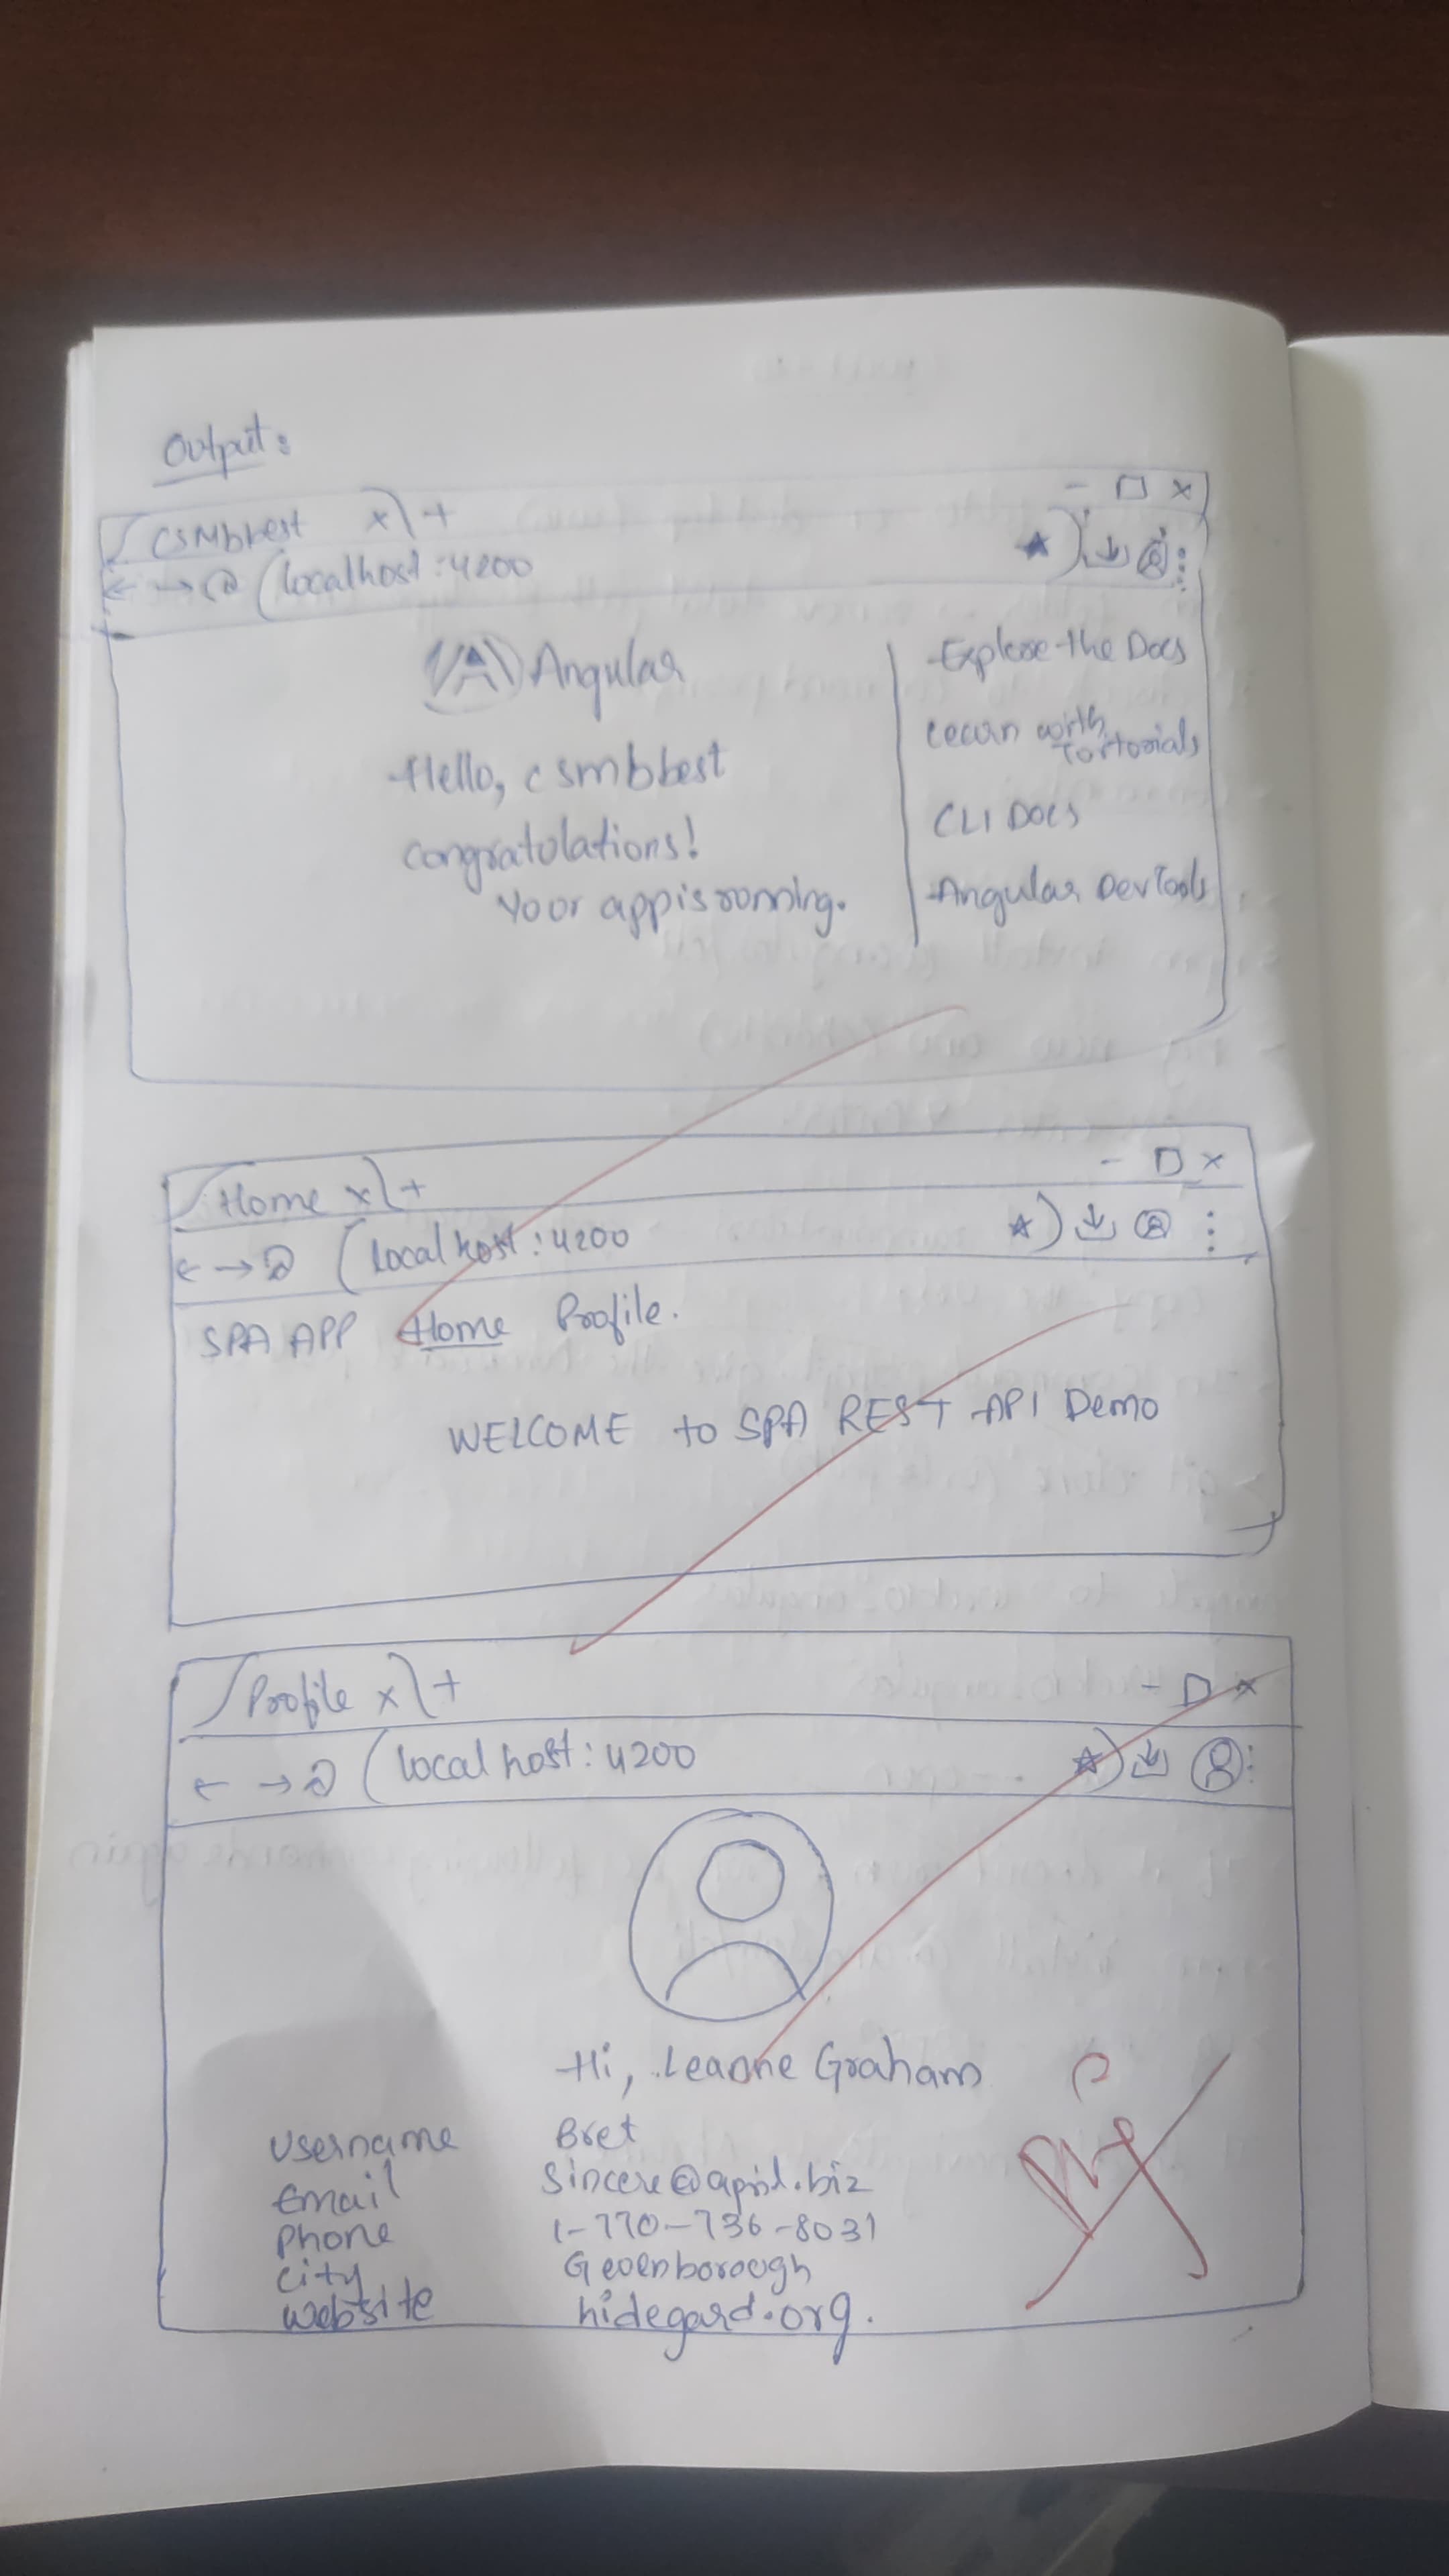 Output:
CSMbbest x +
- □ x
localhost:4200
Angular
Hello, csmbbest
congratulations!
Your app is running.
Explore the Docs
Learn with
Tortorials
CLI Docs
Angular DevTools
Home x +
- □ x
localhost:4200
SPA APP Home Profile.
WELCOME to SPA REST API Demo
Profile x +
- □ x
localhost:4200
Hi, Leanne Graham
Username Bret
Email Sincere@april.biz
Phone 1-770-736-8031
city
website hidegard.org.